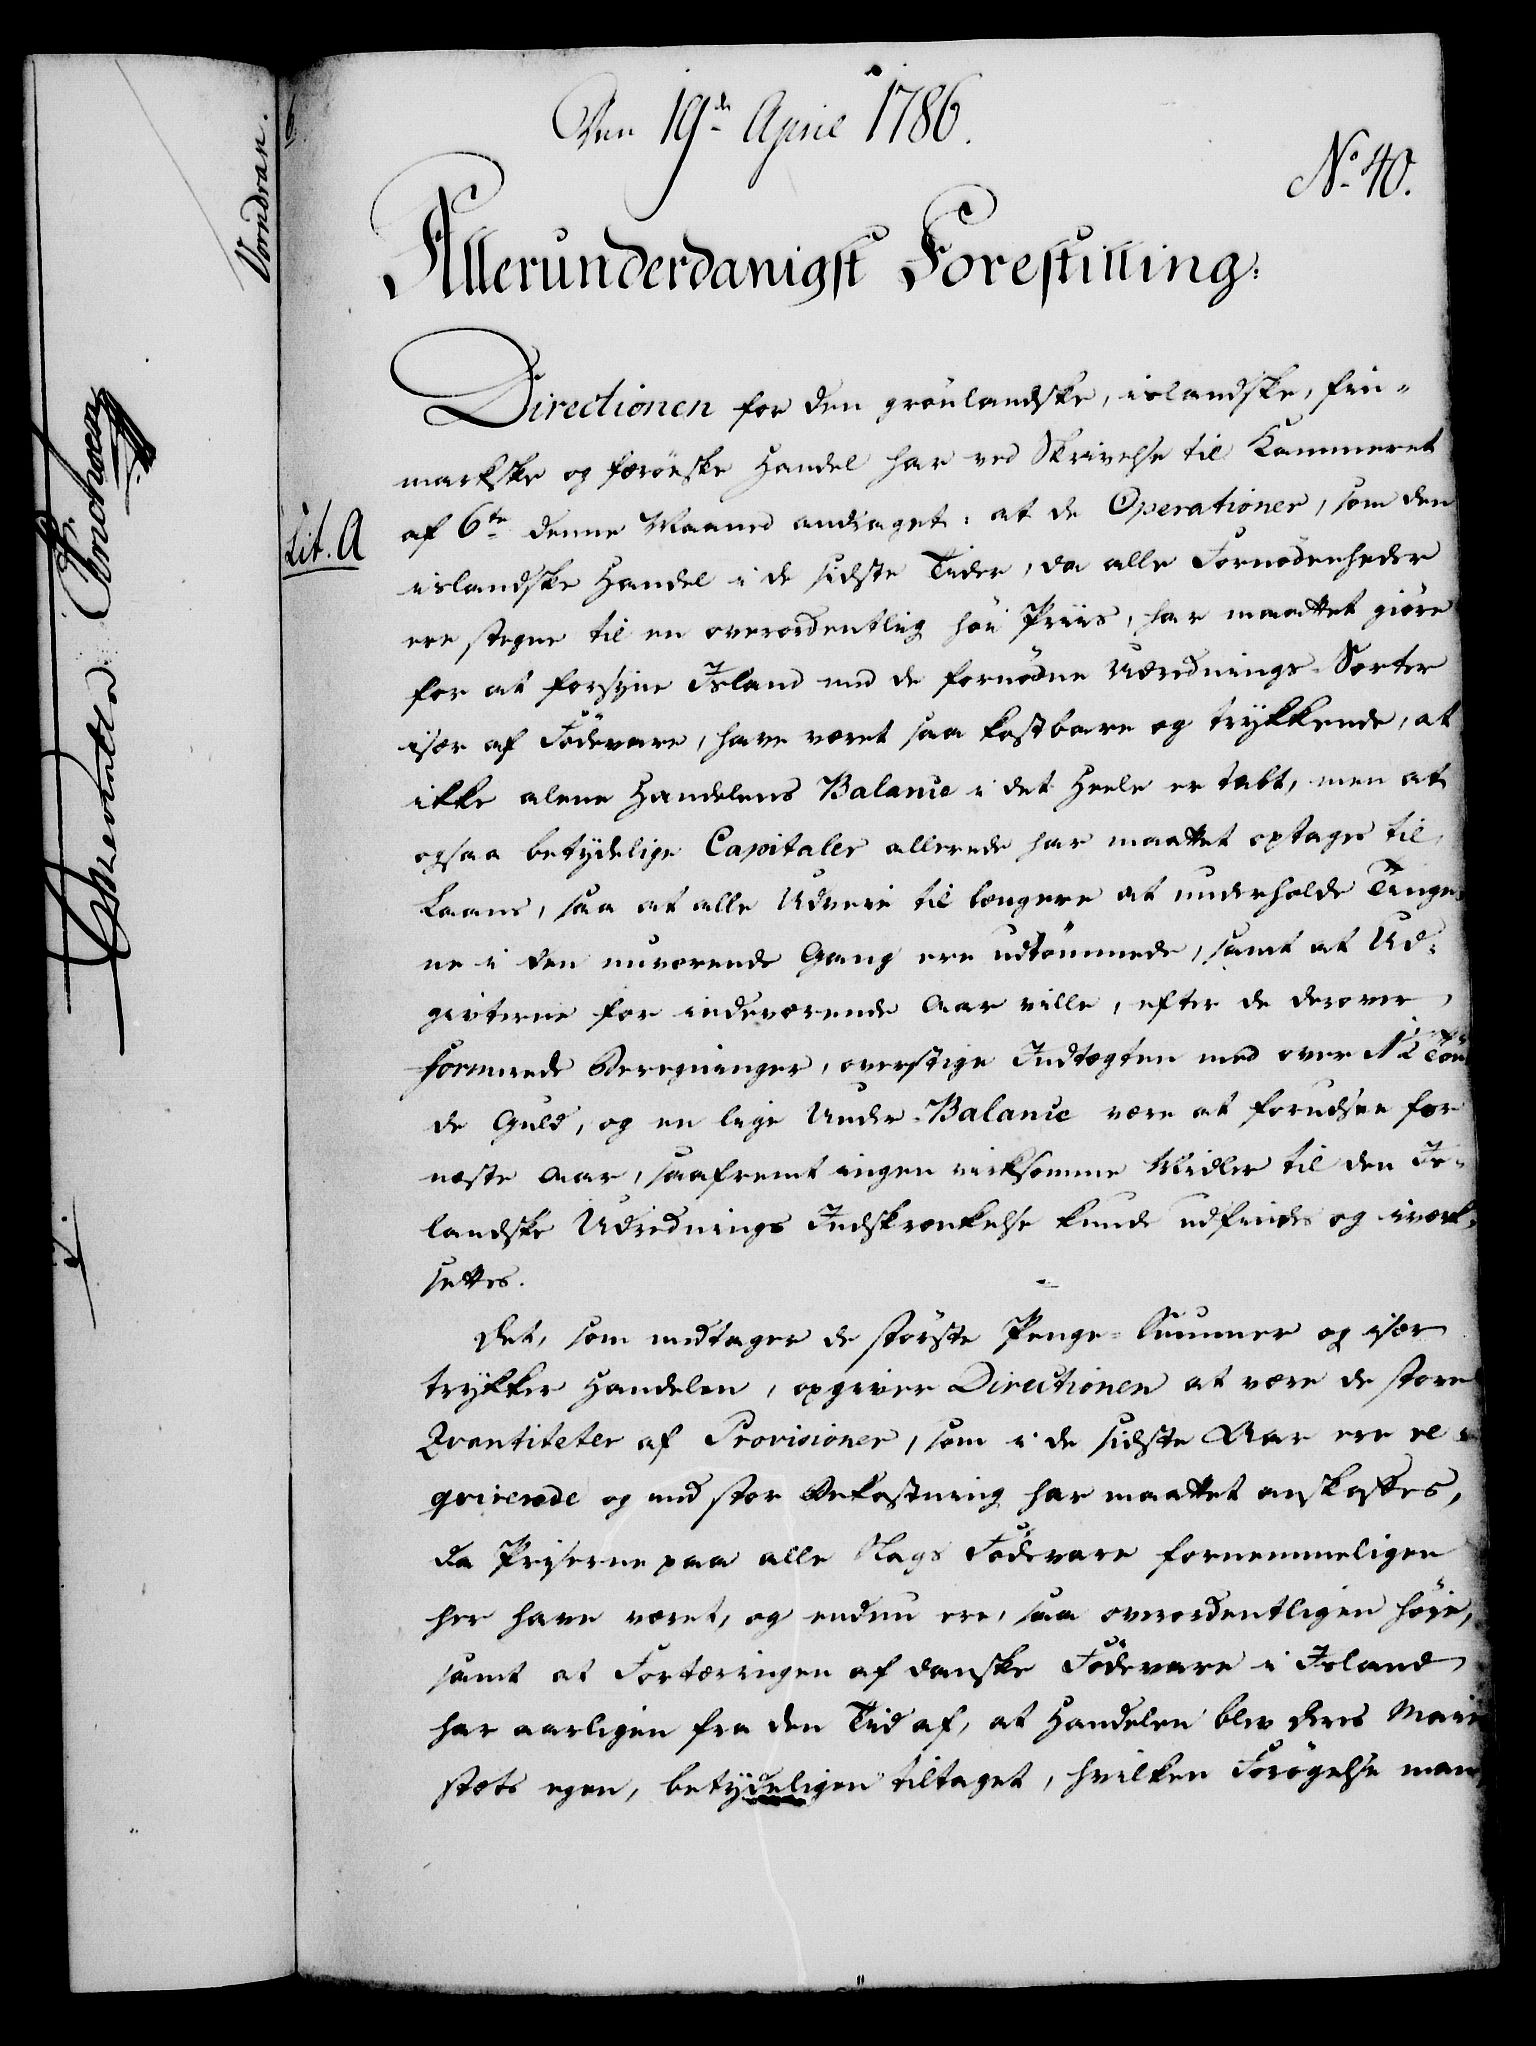 Den 19de April 1786.
No. 40.
Allerunderdanigst Forestilling:
Directionen for den grønlandske, islandske, fin-
markske og færøeske Handel har ved Skrivelse til Kammeret
Lit. A
af 6te denne Maaned andraget: at de Operationer, som den
islandske Handel i de sidste Tider, da alle Fornødenheder
ere stegne til en overordentlig høi Priis, har maattet giøre
for at forsyne Island med de fornødne Udrednings-Sorter
især af Fødevare, have været saa kostbare og trykkende, at
ikke alene Handelens Balance i det Heele er tabt, men at
ogsaa betydelige Capitaler allerede har maattet optages til
Laans, saa at alle Udveie til længere at underholde Tinge-
ne i den nuværende Gang ere udtømmede, samt at Ud-
givterne for indeværende Aar ville, efter de derover
formerede Beregninger, overstige Indtægten med over 1½ Tøn
de Guld, og en lige Under-Balance være at forudsee for
næste Aar, saafremt ingen virksomme Midler til den Is-
landske Udrednings Indskrænkelse kunde udfindes og iværk-
sættes.
Det, som medtager de største Penge-Summer og især
trykker Handelen, opgiver Directionen at være de store
Qvantiteter af Provisioner, som i de sidste Aar ere re-
qvirerede og med stor Bekostning har maattet anskaffes,
da Priserne paa alle Slags Fødevare fornemmeligen
her have været, og endnu ere, saa overordentligen høie,
samt at Fortæringen af danske Fødevare i Island
har aarligen fra den Tid af, at Handelen blev Deres Maje
stæts egen, betydeligen tiltaget, hvilken Forøgelse man
Vorndran.